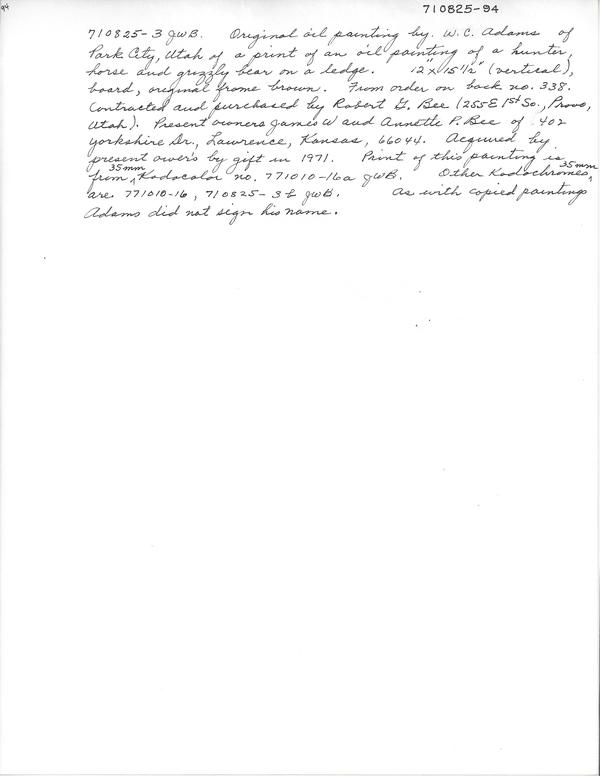 94
710825-94
710825-3 JWB. Original oil painting by W. C. Adams of
Park City, Utah of a print of an oil painting of a hunter,
horse and grizzly bear on a ledge. 12" x 15 1/2" (vertical),
board, original frame brown. From order on back no. 338.
Contracted and purchased by Robert G. Bee (255 E 1st So., Provo,
Utah). Present owners James W and Annette P. Bee of 402
Yorkshire Dr., Lawrence, Kansas, 66044. Acquired by
present owers by gift in 1971. Print of this painting is
from 35mm Kodacolor no. 771010-16a JWB. Other Kodachromes, 35mm
are 771010-16, 710825-3 & JWB. As with copied paintings
Adams did not sign his name.